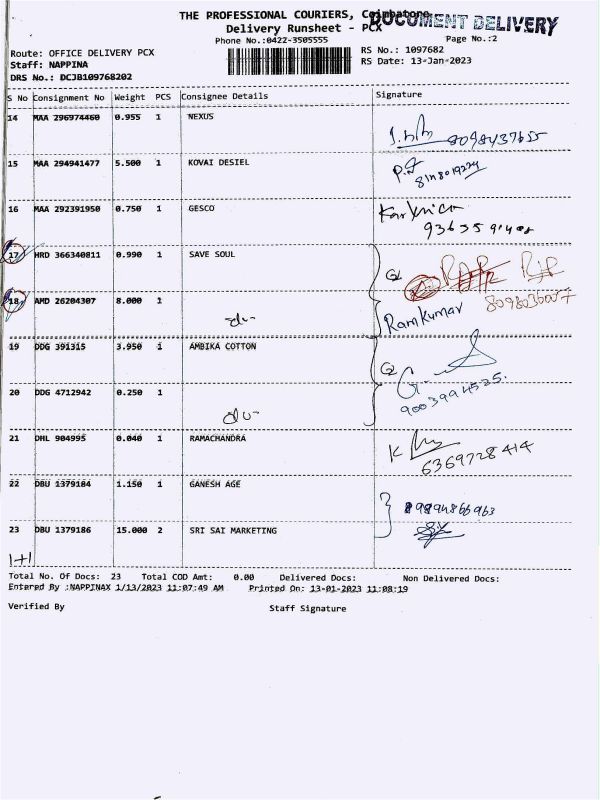 THE PROFESSIONAL COURIERS, Coimbatore
DOCUMENT DELIVERY
Delivery Runsheet - PCX
Phone No.:0422-3505555
Page No.:2
Route: OFFICE DELIVERY PCX
RS No.: 1097682
Staff: NAPPINA
RS Date: 13-Jan-2023
DRS No.: DCJB109768202
S No Consignment No Weight PCS Consignee Details Signature
14 MAA 296974460 0.955 1 NEXUS
8098437655
15 MAA 294941477 5.500 1 KOVAI DESIEL
16 MAA 292391950 0.750 1 GESCO
17 HRD 366340811 0.990 1 SAVE SOUL
18 AMD 26204307 8.000 1
Ramkumar 8098036007
19 DDG 391315 3.950 1 AMBIKA COTTON
20 DDG 4712942 0.250 1
9003994525.
21 DHL 904995 0.040 1 RAMACHANDRA
6369728414
22 DBU 1379184 1.150 1 GANESH AGE
23 DBU 1379186 15.000 2 SRI SAI MARKETING
1+1
Total No. Of Docs: 23 Total COD Amt: 0.00 Delivered Docs: Non Delivered Docs:
Entered By :NAPPINAX 1/13/2023 11:07:49 AM Printed On: 13-01-2023 11:08:19
Verified By Staff Signature